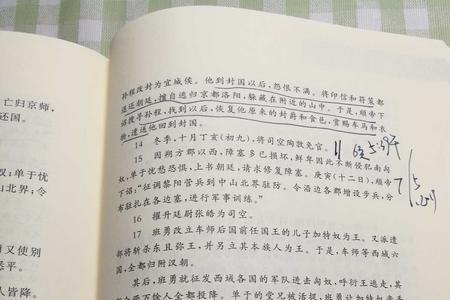 亡归京师,
还国。
奴:单于忧
山北界;令
又使别
悉平。
人皆降。
孙程改封为宜城侯。他到封国以后,怨恨不满。将印信和符策都
退还朝廷,擅自逃归京都洛阳,躲藏在附近的山中。于是,顺帝下
诏搜寻孙程,找到以后,恢复他原来的封爵和食邑,赏赐车马和衣
物,遣送他回到封国。
14 冬季,十月丁亥(初九),将司空陶敦免官。
15 因朔方郡以西,障塞多已损坏,鲜卑因此不断侵犯南匈
奴,单于忧愁恐惧,上书朝廷,请求修复障塞。庚寅(十二日),顺帝
下诏:“征调黎阳营兵到中山北界驻防。令沿边各郡增设步兵,分
布驻扎在各边塞,进行军事训练。”
16 擢升廷尉张皓为司空。
17 班勇改立车师后国前任国王的儿子加特奴为王。又派遣
部将斩杀东且弥王,并另立其本族人为王。于是,车师等西域六
国,全都归附汉朝。
其后,班勇就征发西域各国的军队进击匈奴,呼衍王逃走,其